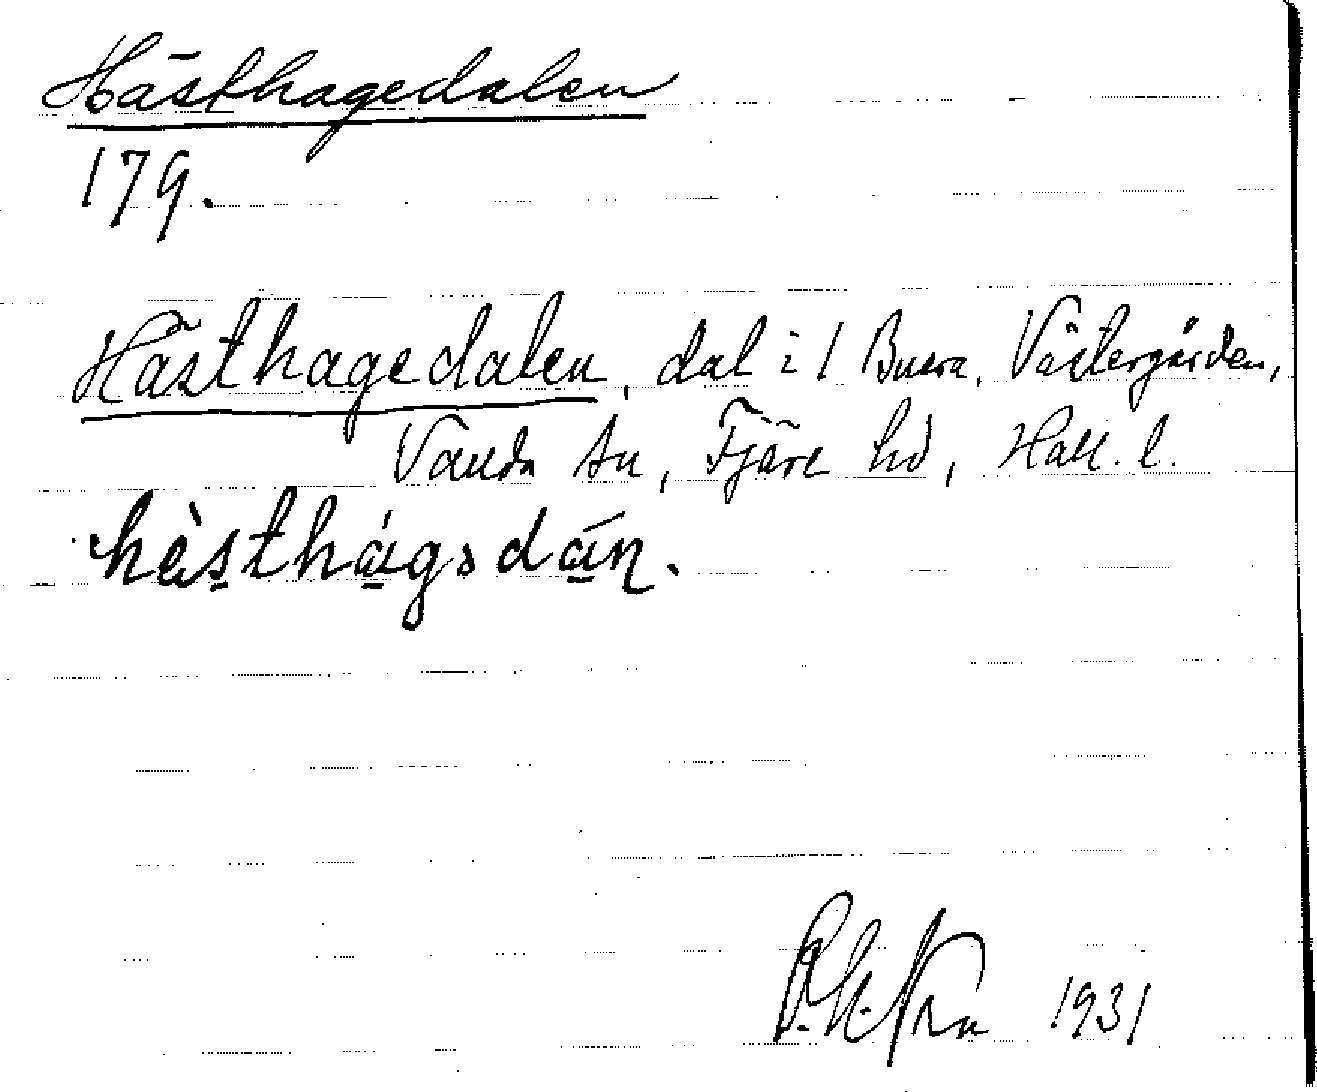 Hästhagedalen
179.
Hästhagedalen, dal i 1 Buera, Västergården,
Vanda sn, Fjäre hd, Hall. l.
hȁsthágədān.
1931